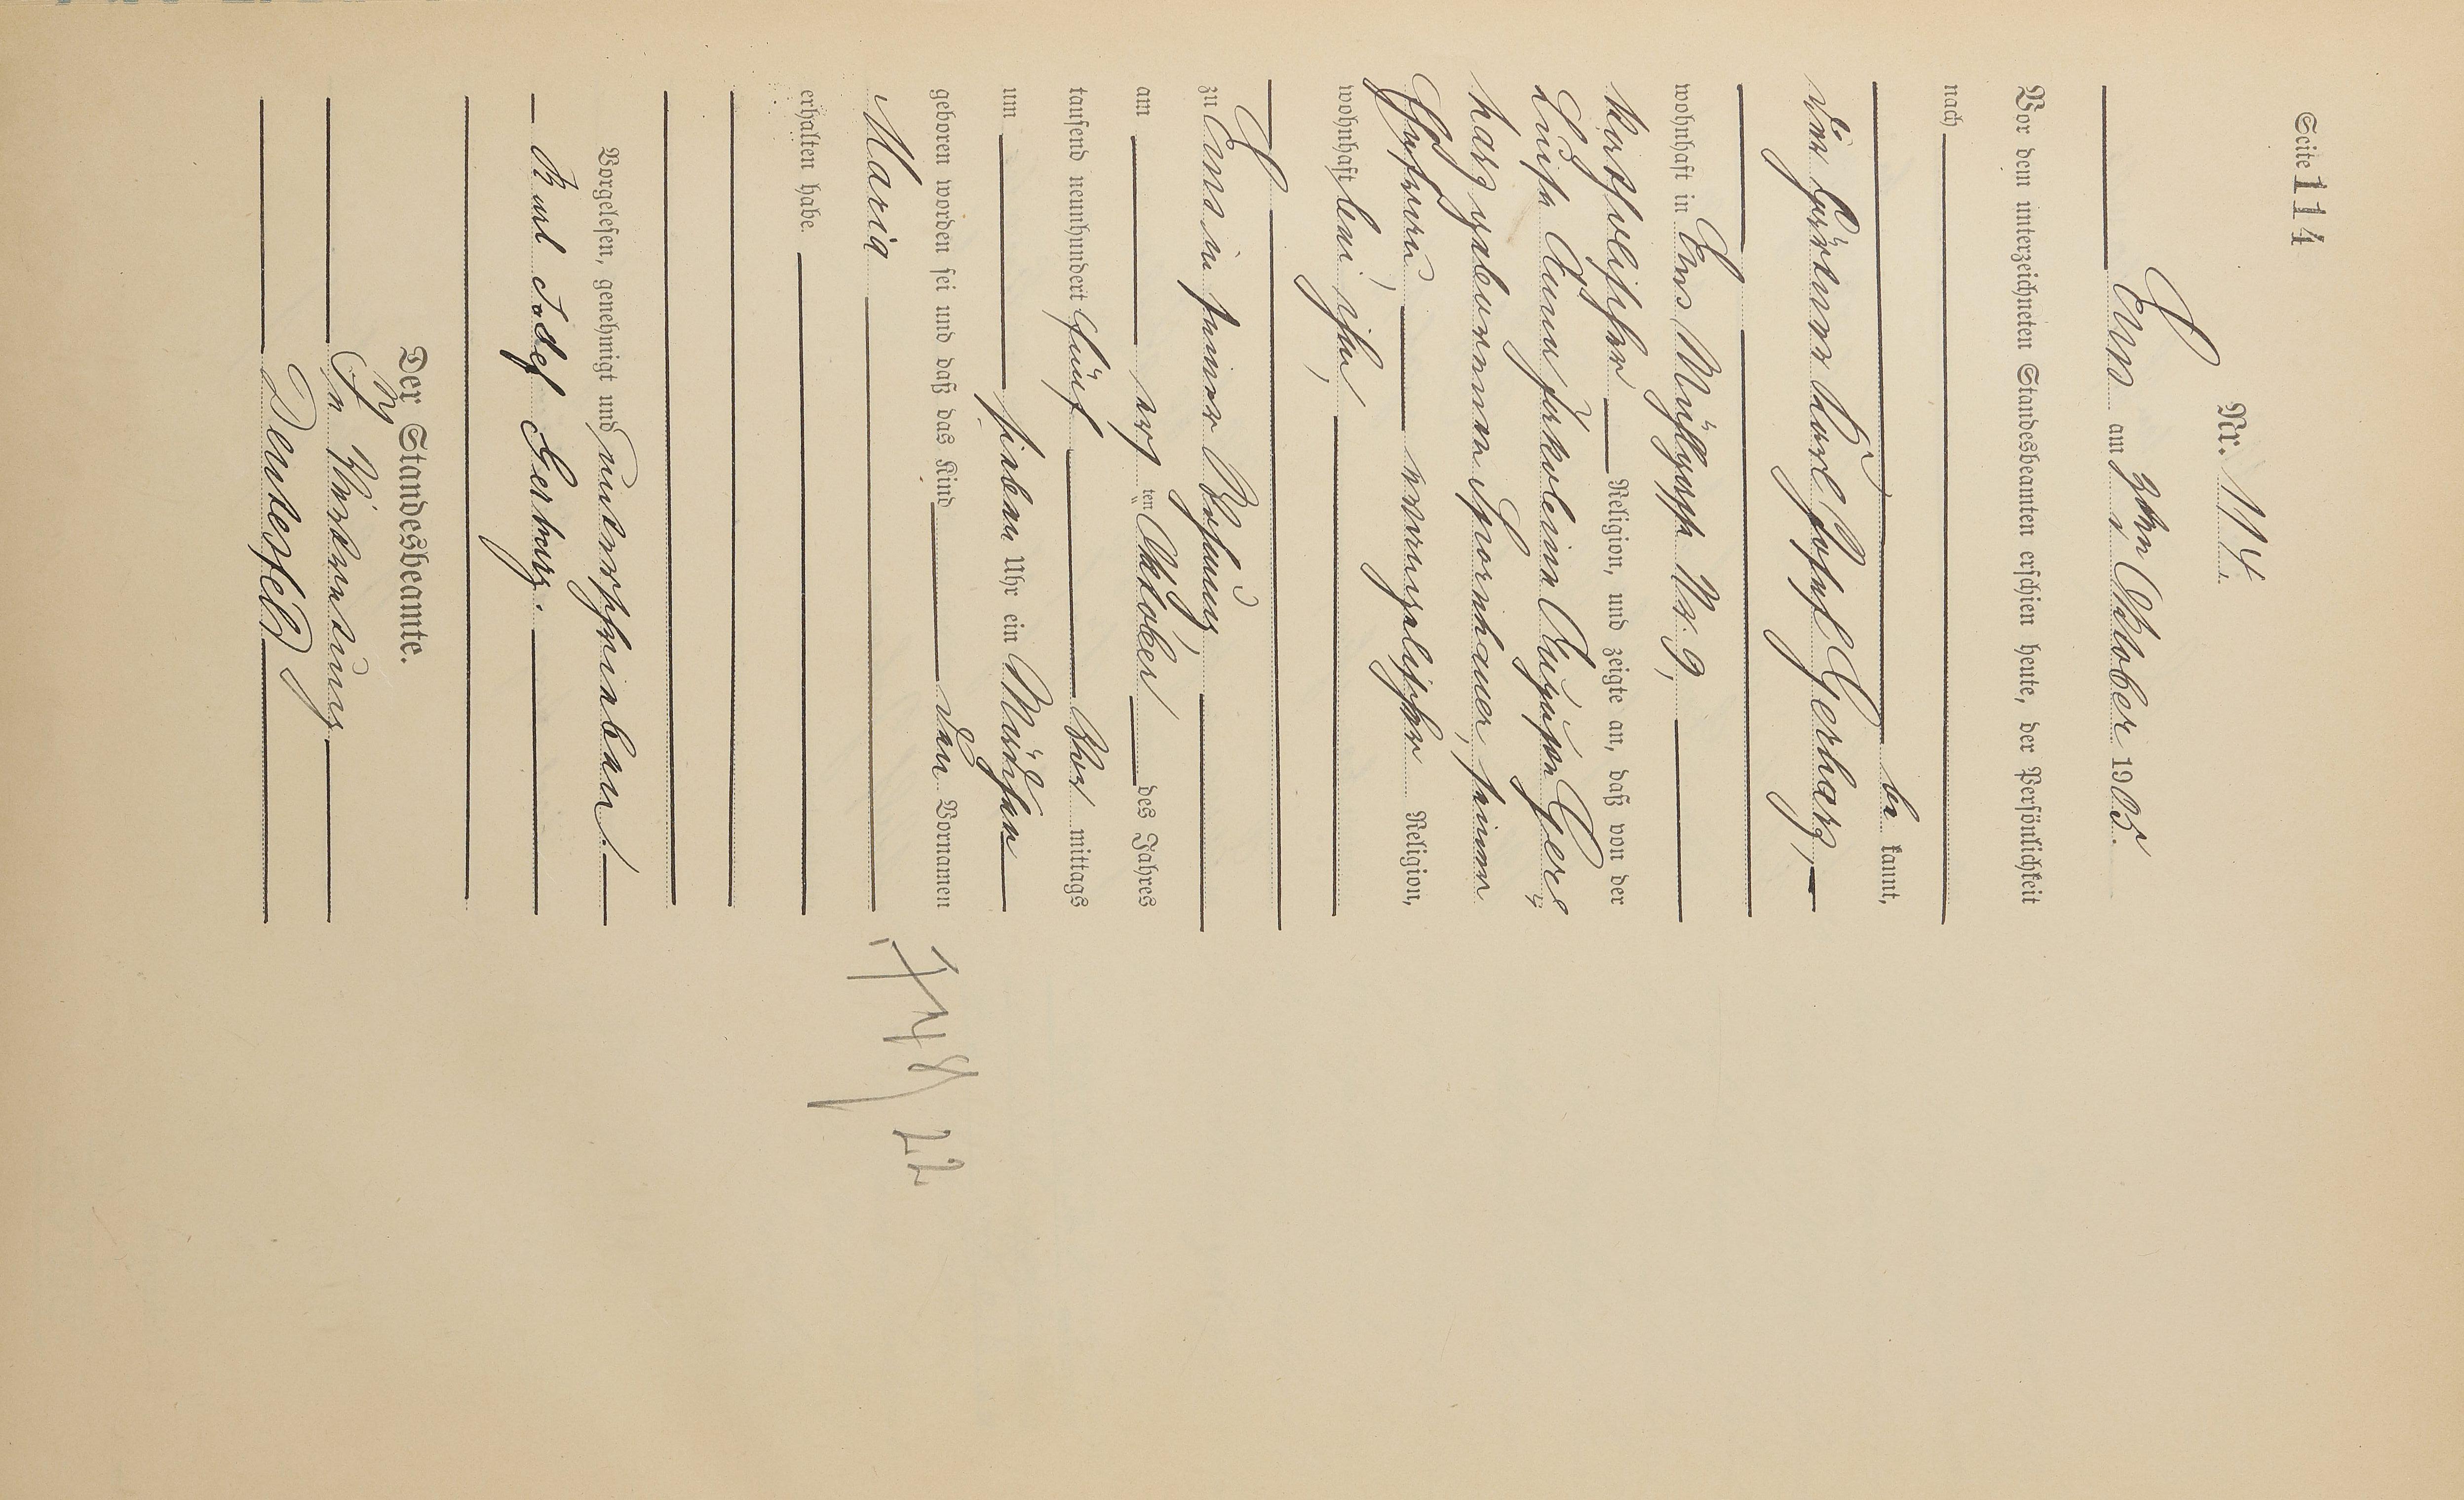 Seite 114
Nr. 114.
Ems am 7ten Oktober 1905.
Vor dem unterzeichneten Standesbeamten erschien heute, der Persönlichkeit
nach
be kannt,
der Gärtner Karl Josef Gerharz,
wohnhaft in Ems Mühlgasse Nr. 9,
katholischer Religion, und zeigte an, daß von der
Luise Anna Gerz
harz geborenen Spornhauer, seiner
Ehefrau evangelischer Religion,
wohnhaft bei ihm,
zu Ems in seiner Wohnung,
am ten Oktober des Jahres
tausend neunhundert fünf Vor mittags
um sieben Uhr ein Mädchen
geboren worden sei und daß das Kind den Vornamen
Maria
erhalten habe.
Vorgelesen, genehmigt und unterschrieben!
Karl Josef Gerharz.
Der Standesbeamte.
In Vertretung